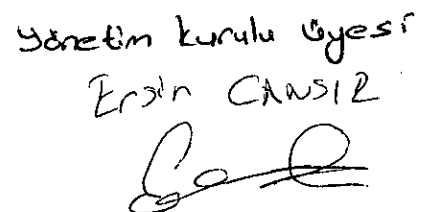 Yönetim kurulu üyesi
Ersin CANSIR